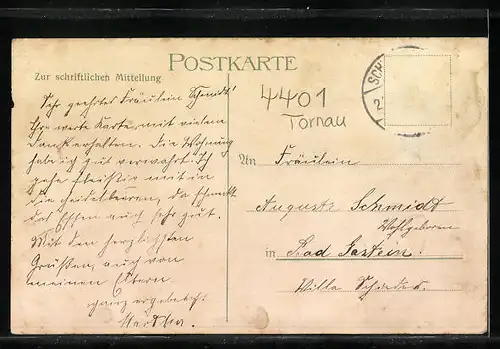 POSTKARTE
Zur schriftlichen Mitteilung
Sehr geehrtes Fräulein Schmidt!
Ihre werte Karte mit vielen
Dank erhalten. Die Wohnung
habe ich gut verwahrt. Ich
gehe fleißig mit in
die Heidelbeeren, da schmeckt
das Essen auch sehr gut.
Mit den herzlichsten
Grüßen, auch von
meinen Eltern
ganz ergebenst
SCH
4401
Tornau
An Fräulein
Auguste Schmidt
Wohlgeboren
in Bad Gastein.
Villa